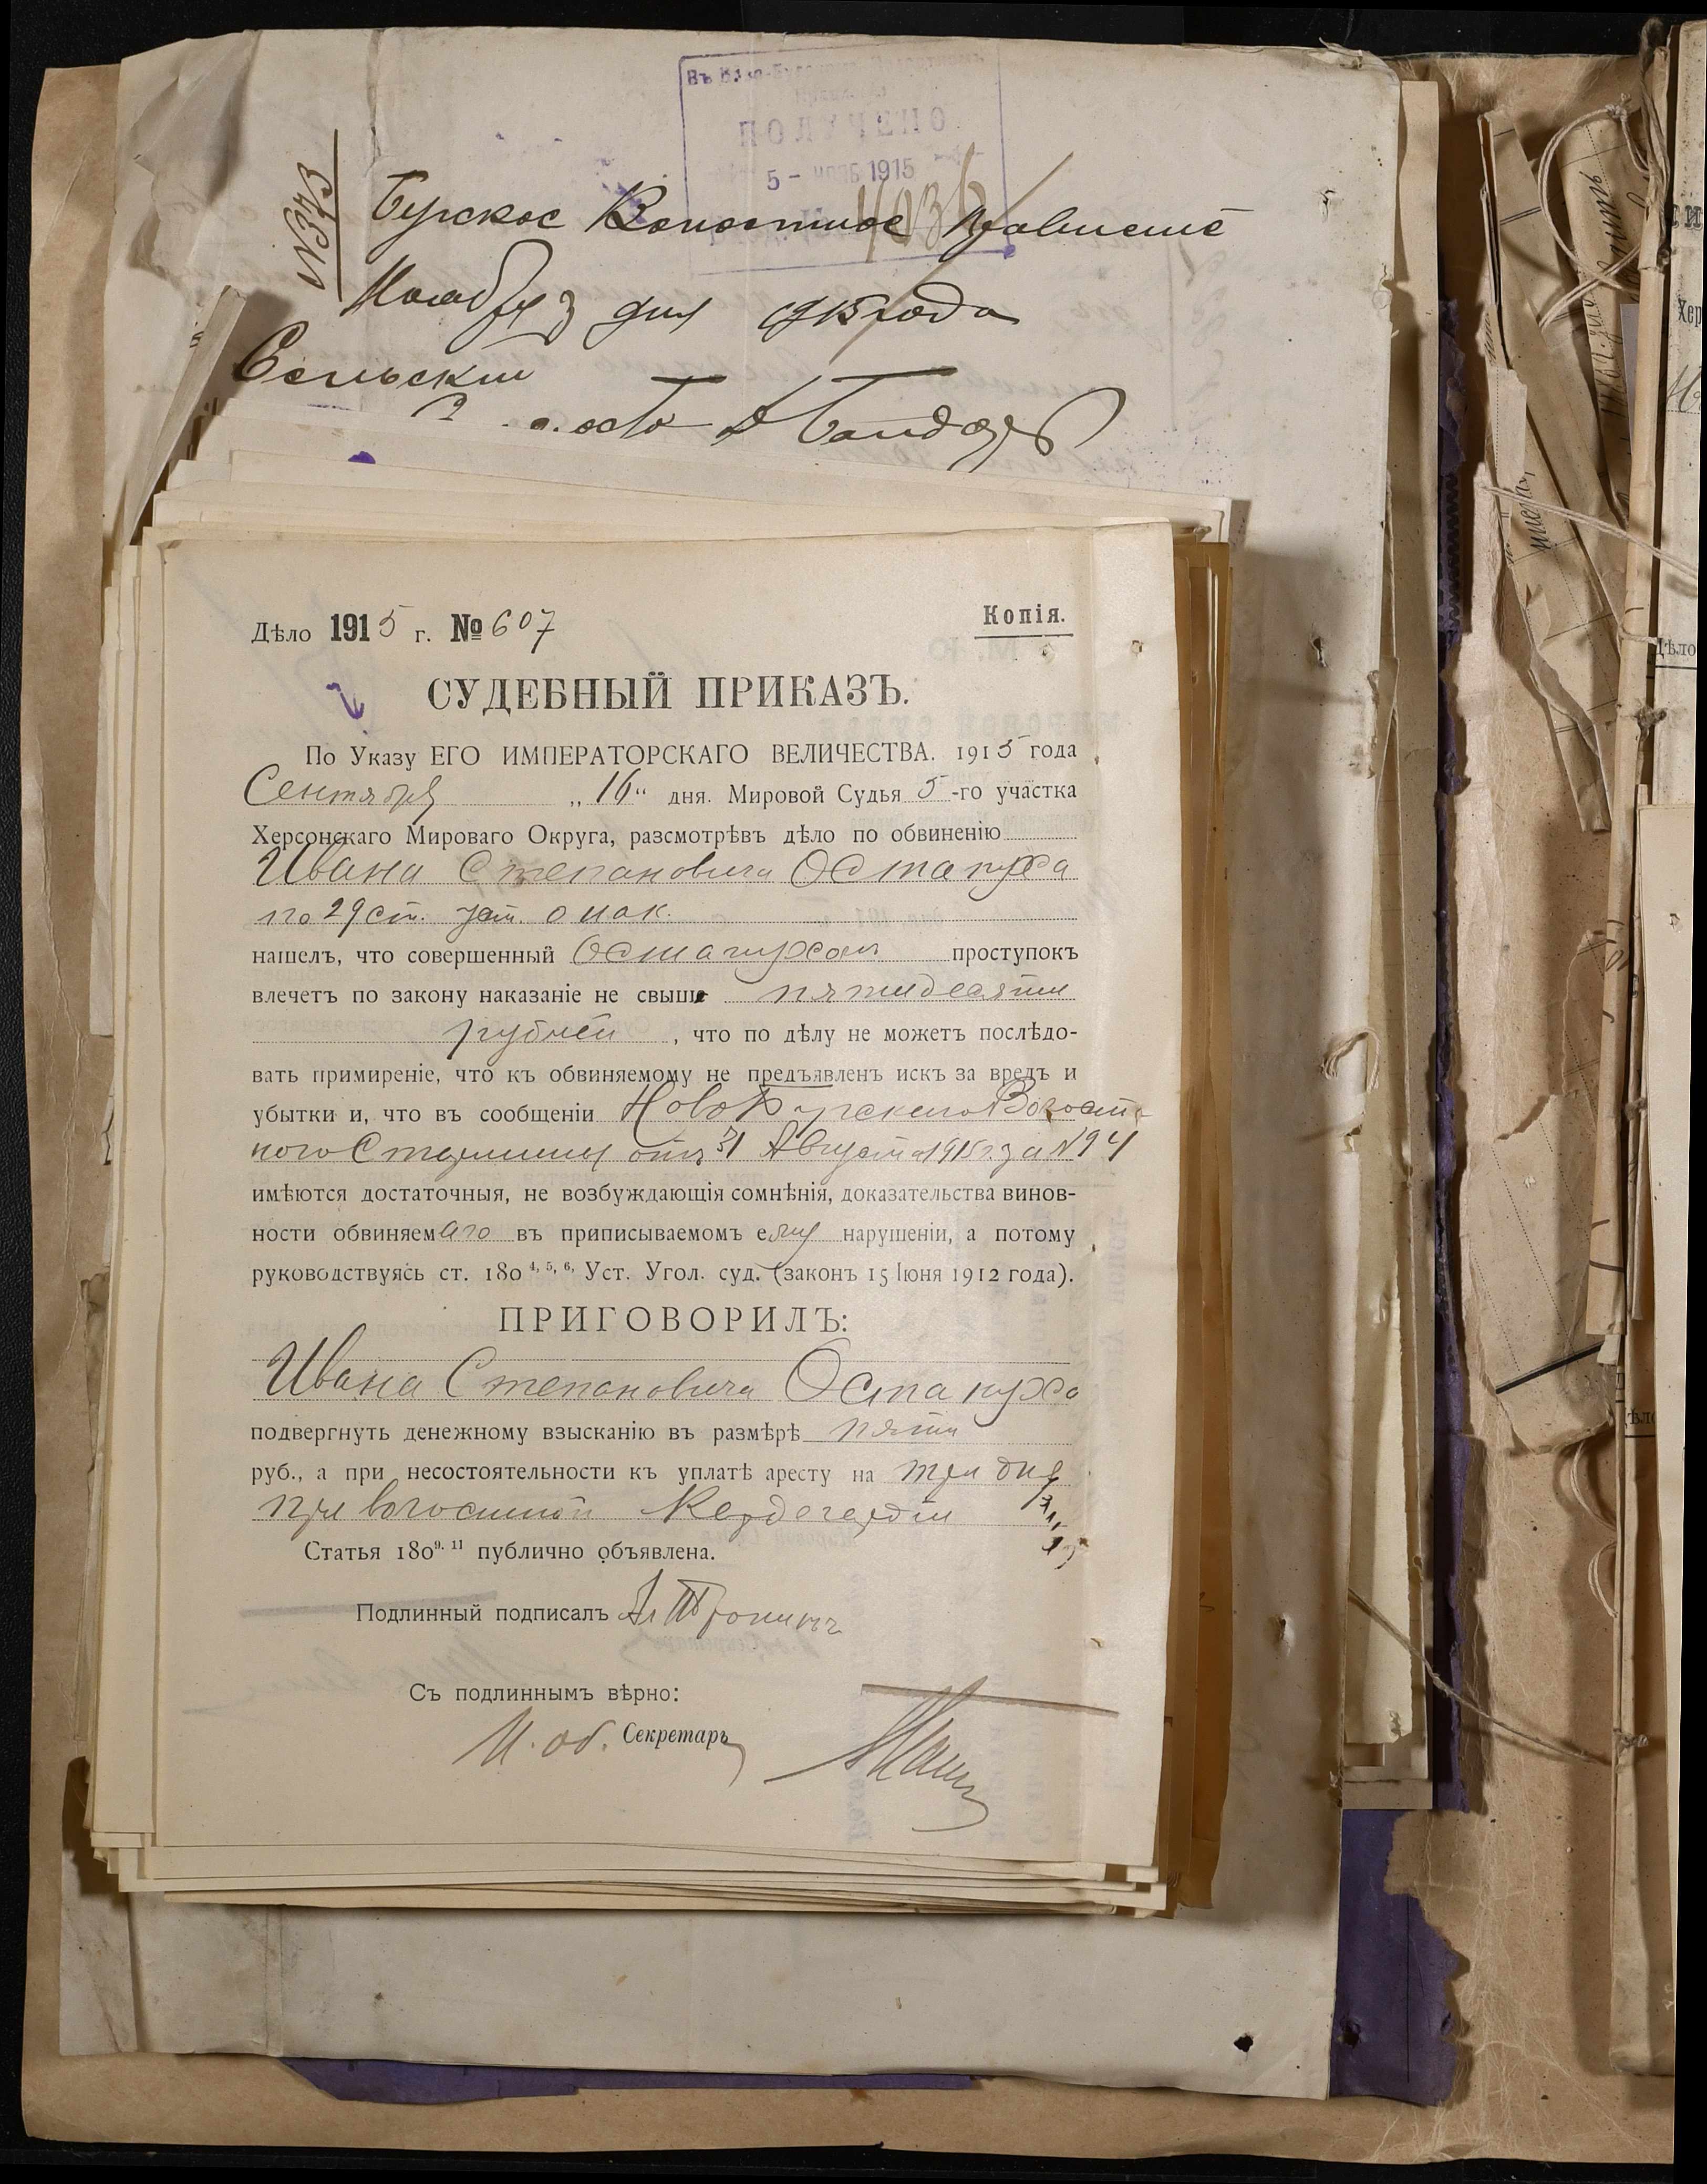 Въ
ПОЛУЧЕНО
5 - 1915
№373
Бурское Волостное Правленіе
Ноября 3 дня 1915 года
Сельскій
Дѣло 1915 г. № 607
Копія.
СУДЕБНЫЙ ПРИКАЗЪ.
По Указу ЕГО ИМПЕРАТОРСКАГО ВЕЛИЧЕСТВА. 1915 года
Сентября „16“ дня. Мировой Судья 5-го участка
Херсонскаго Мироваго Округа, разсмотрѣвъ дѣло по обвиненію
Ивана Степановича Остапуха
по 29 ст. уст. о нак.
нашелъ, что совершенный Остапухом проступокъ
влечетъ по закону наказаніе не свыше пятидесяти
рублей, что по дѣлу не можетъ послѣдо-
вать примиреніе, что къ обвиняемому не предъявленъ искъ за вредъ и
убытки и, что въ сообщеніи Ново Бургскаго Волост-
ного Старшины отъ 31 Августа 1915 г. за №94
имѣются достаточныя, не возбуждающія сомнѣнія, доказательства винов-
ности обвиняемаго въ приписываемомъ ему нарушеніи, а потому
руководствуясь ст. 180 4, 5, 6, Уст. Угол. суд. (законъ 15 Іюня 1912 года).
ПРИГОВОРИЛЪ:
Ивана Степановича Остапуха
подвергнуть денежному взысканію въ размѣрѣ пяти
руб., а при несостоятельности къ уплатѣ аресту на три дня
при волостной Кордегардіи
Статья 180 9. 11 публично объявлена.
Подлинный подписалъ Ал
Съ подлиннымъ вѣрно:
И. об. Секретаря